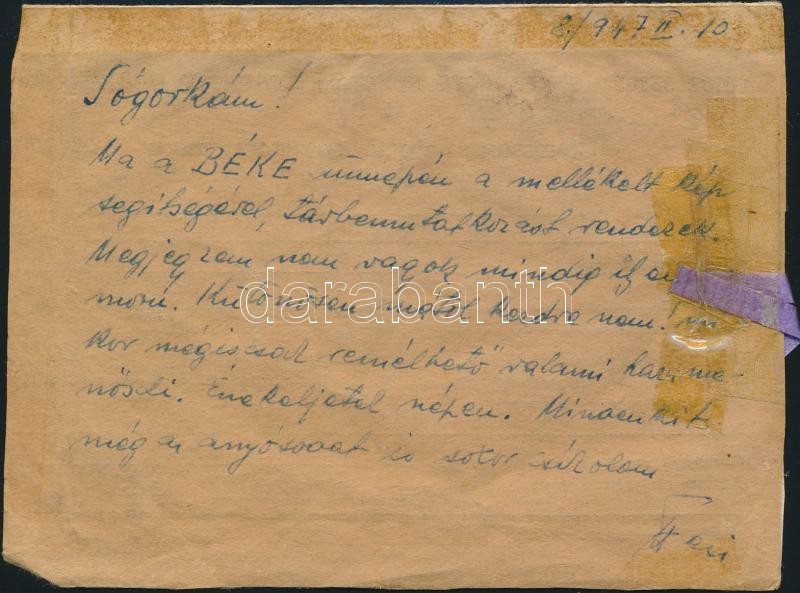 2./947 II. 10
Sógorkám!
Ma a BÉKE ünnepén a mellékelt kép
segitségével, távbemutatkozást rendezek.
Megjegyzem nem vagok mindig ilyen
morc. Különösen mától kezdve nem!
kor mégiscsak remélhető valami haza me-
nősdi. Énekeljetek szépen. Mindenkit
még az anyósomat is sokszor csókolom
Feri
darabanth